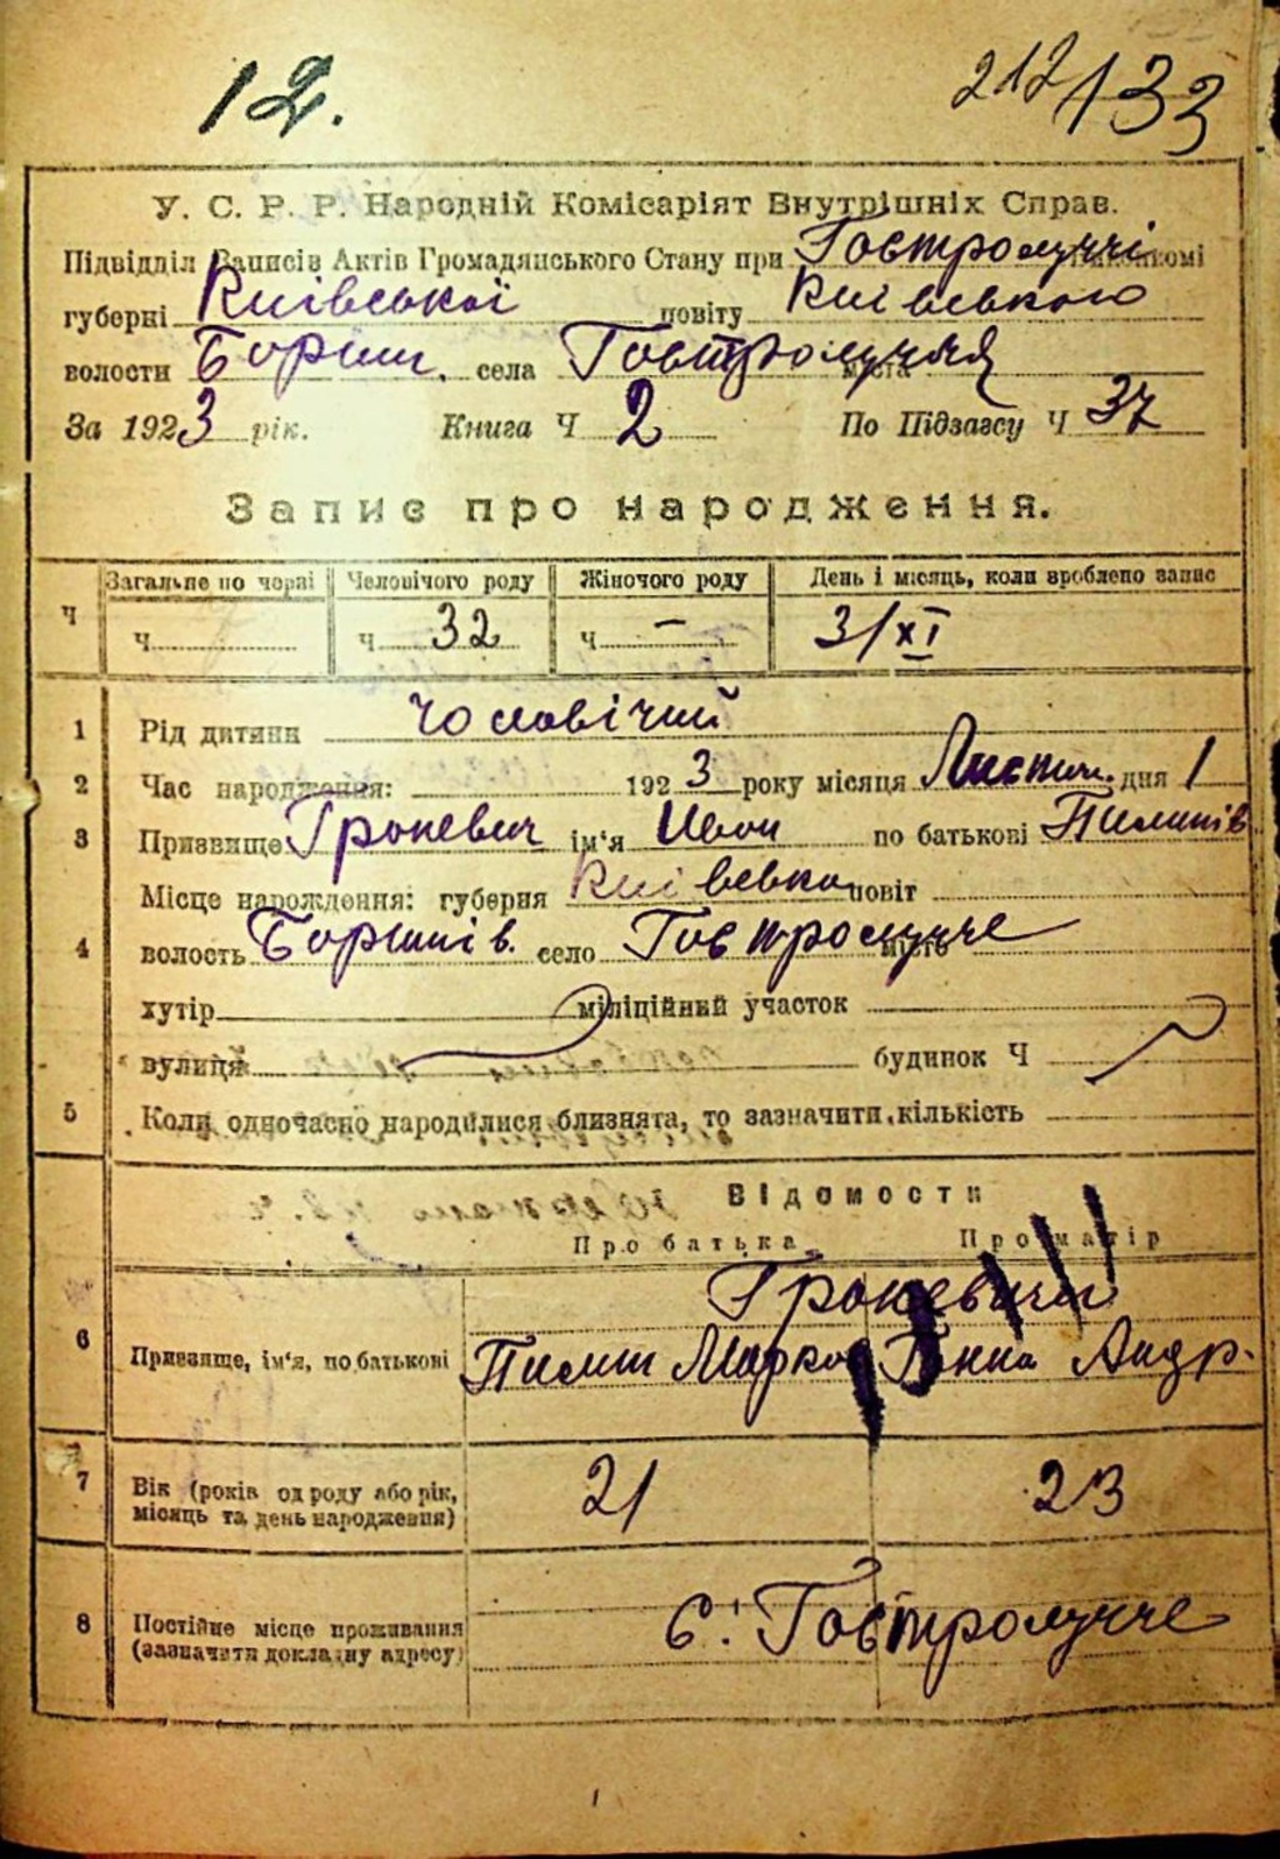 12.
212 133
У. С. Р. Р. Народній Комісаріят Внутрішніх Справ.
Підвідділ Записів Актів Громадянського Стану при Гостролуччі
губерні Київської повіту Київського
волости Бориш. села Гостролуччя міста
За 1923 рік. Книга Ч 2 По Підзагсу Ч 37
Запис про народження.
Загальне по черзі Человічого роду Жіночого роду День і місяць, коли зроблено запис
Ч ч ч 32 ч — 3/XI
1 Рід дитини чоловічий
2 Час народження: 1923 року місяця Листоп. дня 1
3 Призвище Гроневич ім'я Иван по батькові Пилипів
Місце нарождення: губерня Київська повіт
4 волость Боришпів. село Гостролучче місто
хутір міліційний участок
вулиця будинок Ч
5 Коли одночасно народилися близнята, то зазначити кількість
Відомости
Про батька Про матір
Гроневичи
6 Призвище, ім'я, по батькові Пилип Марков Ганна Андр.
7 Вік (років од роду або рік, 21 23
місяць та день народження)
8 Постійне місце проживання с. Гостролучче
(зазначити докладну адресу)